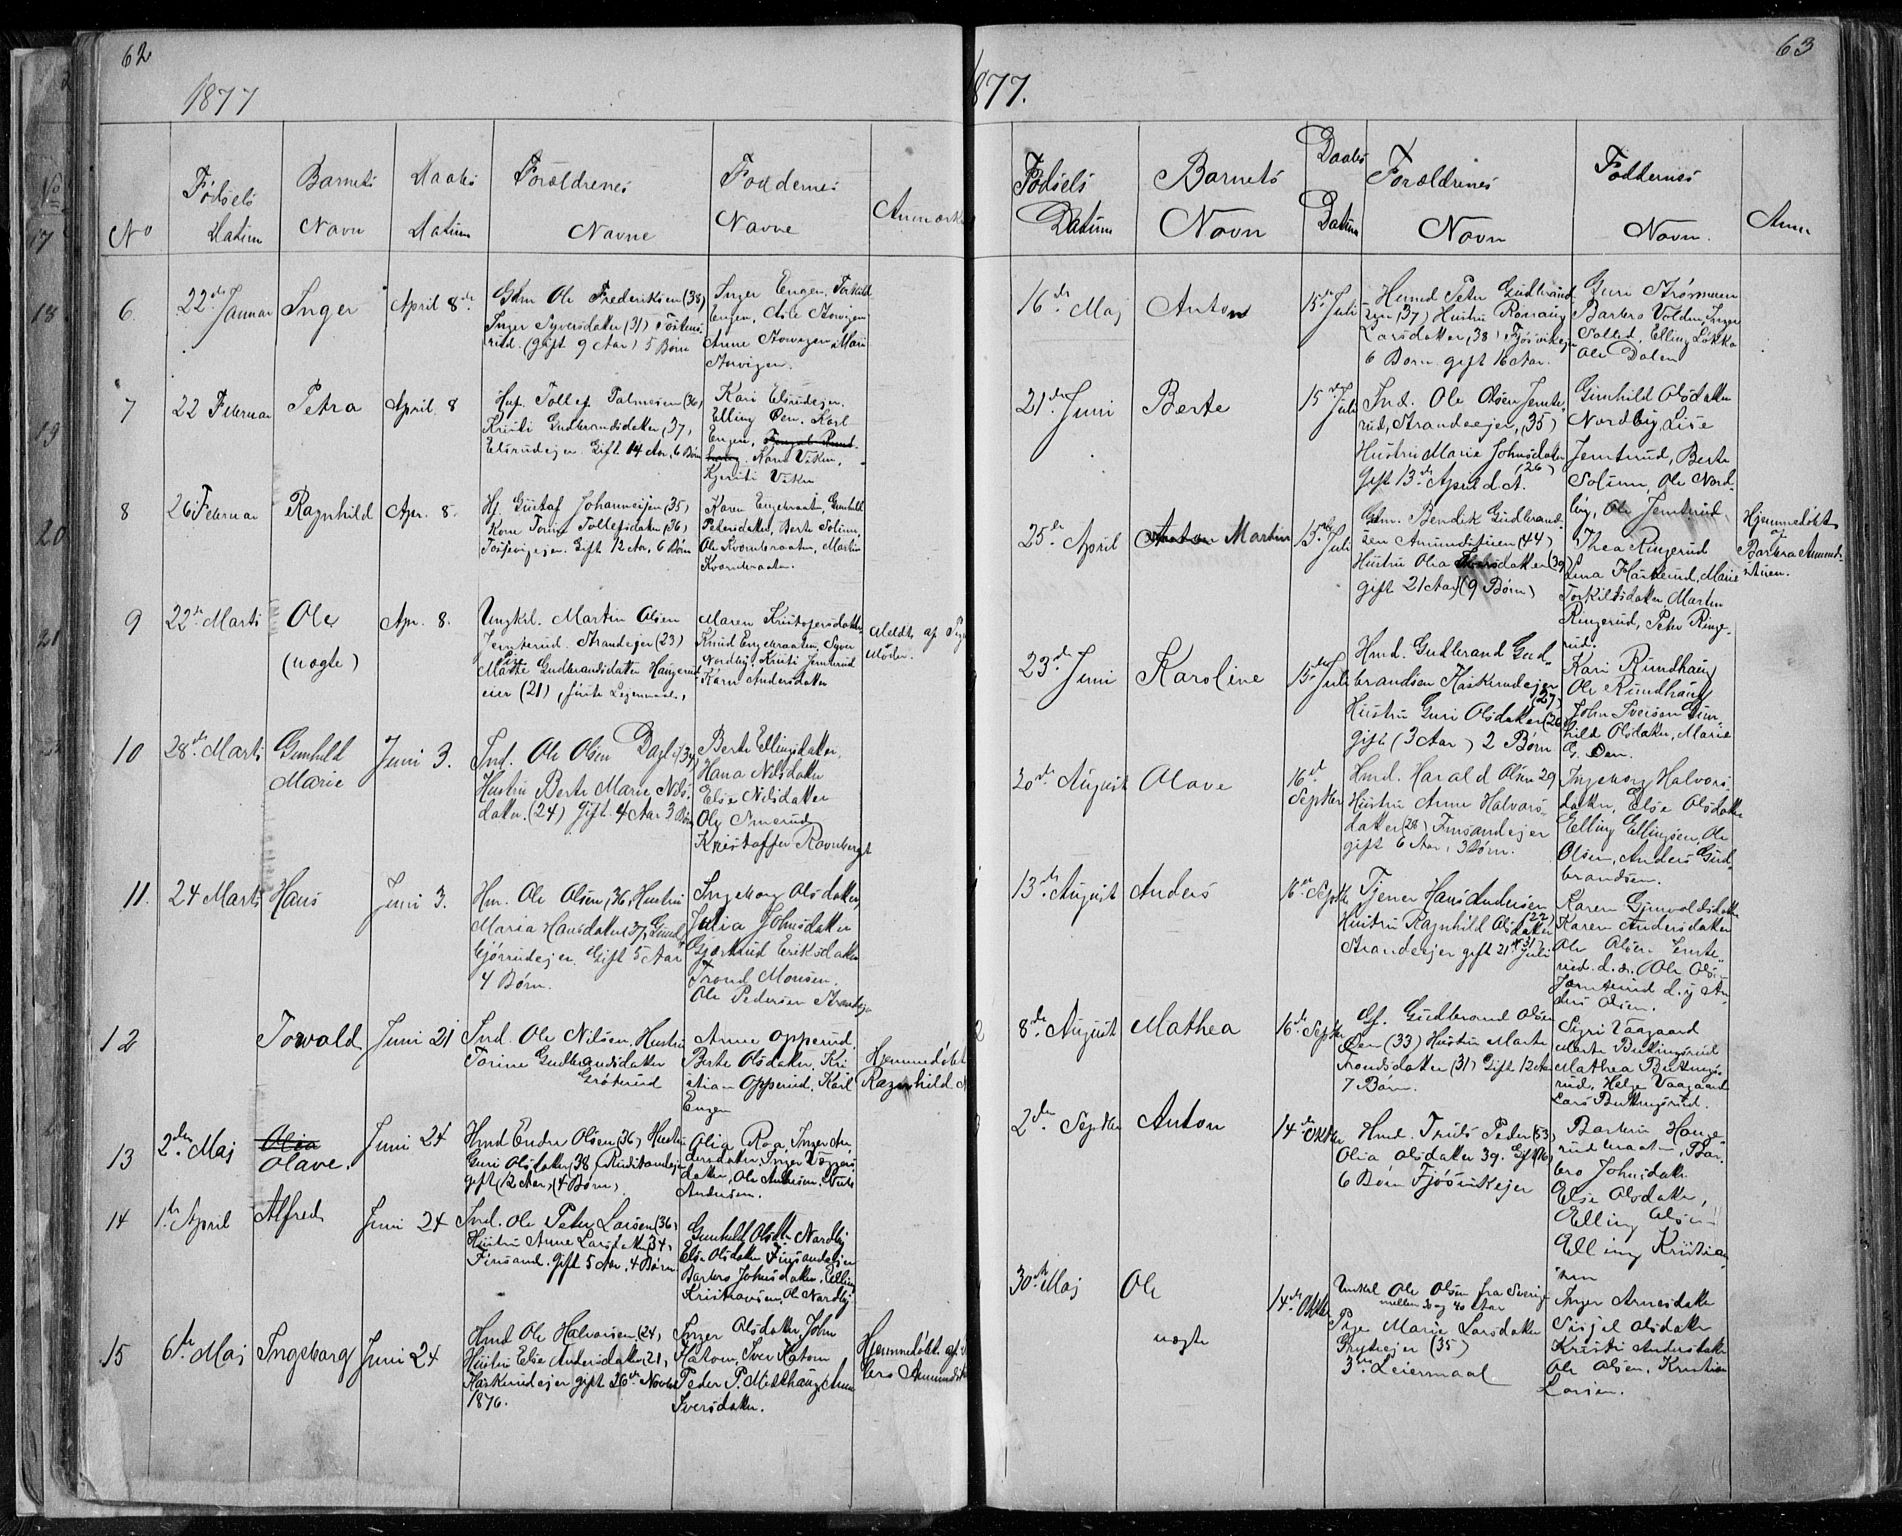 62
1877
No
Fødsels
Datum
Barnets
Navn
Daabs
Datum
Forældrenes
Navne
Faddernes
Navne
Anmærk
6
22de Januar
Inger
April 8de
Gdm Ole Frederiksen (38)
Inger Syversdatter (31)
rud. (gift 9 Aar) 5 Børn
Inger Engen, Torkild
Engen,
Anne Storvigen Mari
Storvigen.
7
22 Februar
Petra
April 8
Huf. Tollef Palmesen (36)
Kristi Gudbrandsdatter (37,
Elsrudejer. Gift 14 Aar, 6 Børn
Kari Elsrudejer.
Elling Øen. Karl
Engen,
Karn Viken,
Kjersti Viken
8
26 Februar
Ragnhild
Apr. 8.
Hj. Gustaf Johannesen (35)
Kone Torine Tollefsdatter (36)
Gift 12 Aar, 6 Børn
Karen Engebraaten, Gunhild
Pedersdatter, Berte Solum,
Ole Kvernbraaten, Martin
Kvernbraaten.
9
22de Marts
Ole
(uægte)
Apr. 8.
Ungkrl. Martin Olsen
Jemterud. Strandeejer (23)
Gudbrandsdatter Haugerud
eier (21), første Lejermaal,
Maren Kristofersdatter
Knud Engebraaten, Syver
Nordby, Kristi Jemterud
Karn Andersdatter
Meldt af
Moder.
10
28de Marts
Gunhild
Marie
Juni 3.
Ind. Ole Olsen (34)
Hustru Berte Marie Nils-
datter. (24) Gift 4 Aar 3 Børn
Berte Ellingsdatter,
Hana Nilsdatter
Else Nilsdatter
Ole Smerud
Kristoffer Ravnberget
11.
24 Marts
Hans
Juni 3.
Hm. Ole Olsen, 36, Hustru
Maria Hansdatter, 37,
Gjørrudejer. Gift 5 Aar
4 Børn.
Ingeborg Olsdatter,
Julia Johnsdatter
Gjertrud Eriksdatter
Trond Monsen,
Ole Pedersen Strandeje
12
Torvald
Juni 21
Ind. Ole Nilsen, Hustru
Torine Gudbrandsdatter
Grøterud
Anne Opperud,
Berte Olsdatter, Kri
stian Opperud, Karl
Engen
Hjemmedøbt
Ragnhild
13
2den Maj
Olia
Olave.
Juni 24
Hmd Endre Olsen (36) Hustru
Guri Olsdatter (38)
gift (12 Aar) (4 Børn)
Olia Roa, Inger An
dersdatter, Inger
datter, Ole Andersen,
Andersen.
14
1ste April
Alfred
Juni 24
Ind. Ole Peter Larsen (36)
Hustru Anne Larsdatter, 34,
Finsand. Gift 5 Aar, 4 Børn
Gunhild Olsdtr Nordby
Else Olsdatter Finsandejer
Barbro Johnsdatter, Elling
Kristiansen, Ole Nordby
15
6te Maj
Ingeborg
Juni 24
Hmd Ole Halvorsen (24)
Hustru Else Andersdatter, 21,
Haskerudejer gift 26de Novbr
1876.
Inger Olsdatter, John
Hatom, Iver Hatom
Peder P. Miskhaug, Anne
Iversdatter.
Hjemmedøbt af
bro Amunds
63
1877.
Fødsels
Datum
Barnets
Navn
Daabs
Datum
Forældrenes
Navn
Faddernes
Navn.
Anm
16de Maj
Anton
15de Juli
Husmd Peter Gudbrand-
sen (37) Hustru
Larsdatter, 38,
6 Børn gift 16 Aar.
Guri Strømmen
Barbro Volden, Inger
Elling Løkka
Ole Dalen
21de Juni
Berte
15de Juli
Ind. Ole Olsen Jemte-
rud, Strandeejer, (35)
Hustru Marie Johnsdatter
(26)
Gift 13de April d. A.
Gunhild Olsdatter
Nordby, Lise
Jemterud, Berte
Solum, Ole Nord-
by, Ole Jemterud
25de April
Anton Martin
15de Juli
Gdm. Bendik Gudbrand-
sen Amundstuen (44)
Hustru Olia
gift 21 Aar (9 Børn)
Thea Ringerud
Lina Haskerud, Marie
Torkildsdatter Martin
Ringerud, Peter Ringe-
rud.
Hjemmedøbt
af
Barbra Amund-
stuen.
23de Juni
Karoline
15de Juli
Hmd. Gudbrand Gud-
brandsen Haskerudejer
(27)
Hustru Guri Olsdatter (26
gift (3 Aar) 2 Børn
Kari Rundhaug
Ole Rundhaug
John Iversen Gun-
hild Olsdatter, Marie
G. Øen.
20de August
Olave
16de
Septbr
Hmd. Harald Olsen 29
Hustru Anne Halvors-
datter (28) Finsandejer
gift 6 Aar, 3 Børn.
Ingeborg Halvors-
datter, Else Olsdatter
Elling Ellingsen, Ole
Olsen, Anders Gud-
brandsen.
13de August
Anders
16de Septbr
Tjener Hans Andersen
(22)
Hustru Ragnhild Olsdatter
Strandeejer gift 21de Juli
Karen Gunvoldsdatter
Karen Andersdatter
Ole Olsen Jemte-
rud. d. æ. Ole Ols.
Jemterud d. y An-
ders Olsen.
8de August
Mathea
16de Septbr
Gf. Gudbrand Olsen
Øen (33) Hustru Marte
Trondsdatter (31) Gift 12 Aar
7 Børn.
Sigri Vaagaard
Marte Buttingsrud
Mathea Buttings-
rud, Helge Vaagaard
Lars Buttingsrud.
2den Septbr
Anton
14de Oktbr
Hmd. Truls Peder (33)
Olia Olsdatter 39. Gift (16)
6 Børn Fjøsvikejer
Barbro Hauge-
rudbraaten, Bar-
bro Johnsdatter
Else Olsdatter,
Elling Olsen
Elling Kristian-
sen
30te Maj
Ole
uægte
14de Oktbr
Unkrl Ole Olsen fra Sverig
mellem 30 og 40 Aar
Pige Marie Larsdatter
(35)
3die Leiermaal
Inger Arnesdatter
Sisjel Olsdatter
Kristi Andersdatter
Ole Olsen, Kristian
Larsen.
17
18
19
20
21